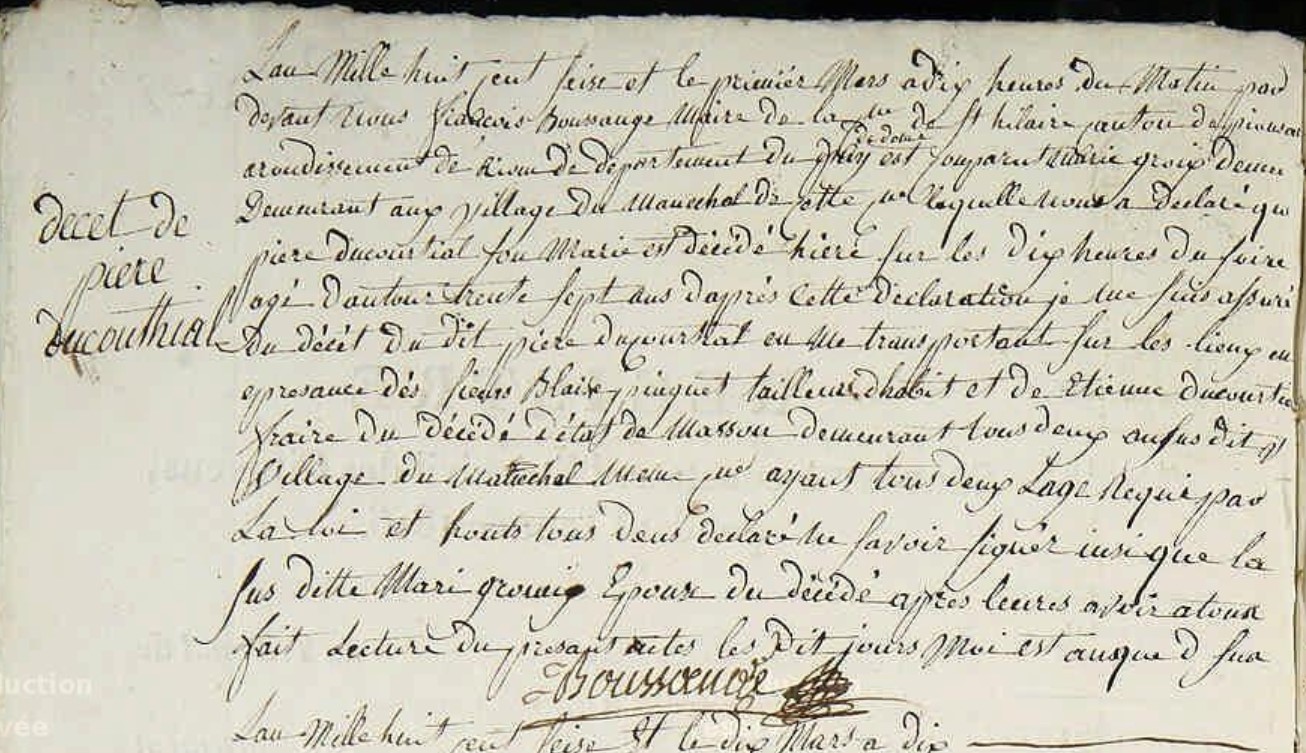 Lan Mille huit cent seise et le premier Mars a dix heures du Matin par
devant nous francois Boussange Maire de la ne de st hilaire canton de pionsat
arondissement de Riom de departement du puy de dome est comparut Marie
Demeurant aux village du Marechal de cette ne lequelle nous a declaré que
piere ducoutial son Marie est décédé hiere sur les dix heures du soire
agé dautour trente sept ans daprés cette declaration je me suis assuré
du décét du dit piere ducourtial en me transportant sur les lieux en
presance dés sieurs Blaise pinquet tailleur dhabit et de Etienne ducourtial
fraire du décédé détat de Masson demeurant tous deux au sus dit
Village du Marechal Meme ne ayant tous deux Lage Requi par
La loi et honts tous deus declaré ne savoir signér insi que la
sus ditte Mari Epouse du décédé aprés leures avoir a tous
fait Lecture du presant actes les dit jours Moi est an que d sus
Boussange
Lan Mille huit cent seise Et le dix Mars a dix
decet de
piere
ducouthial
duction
vée